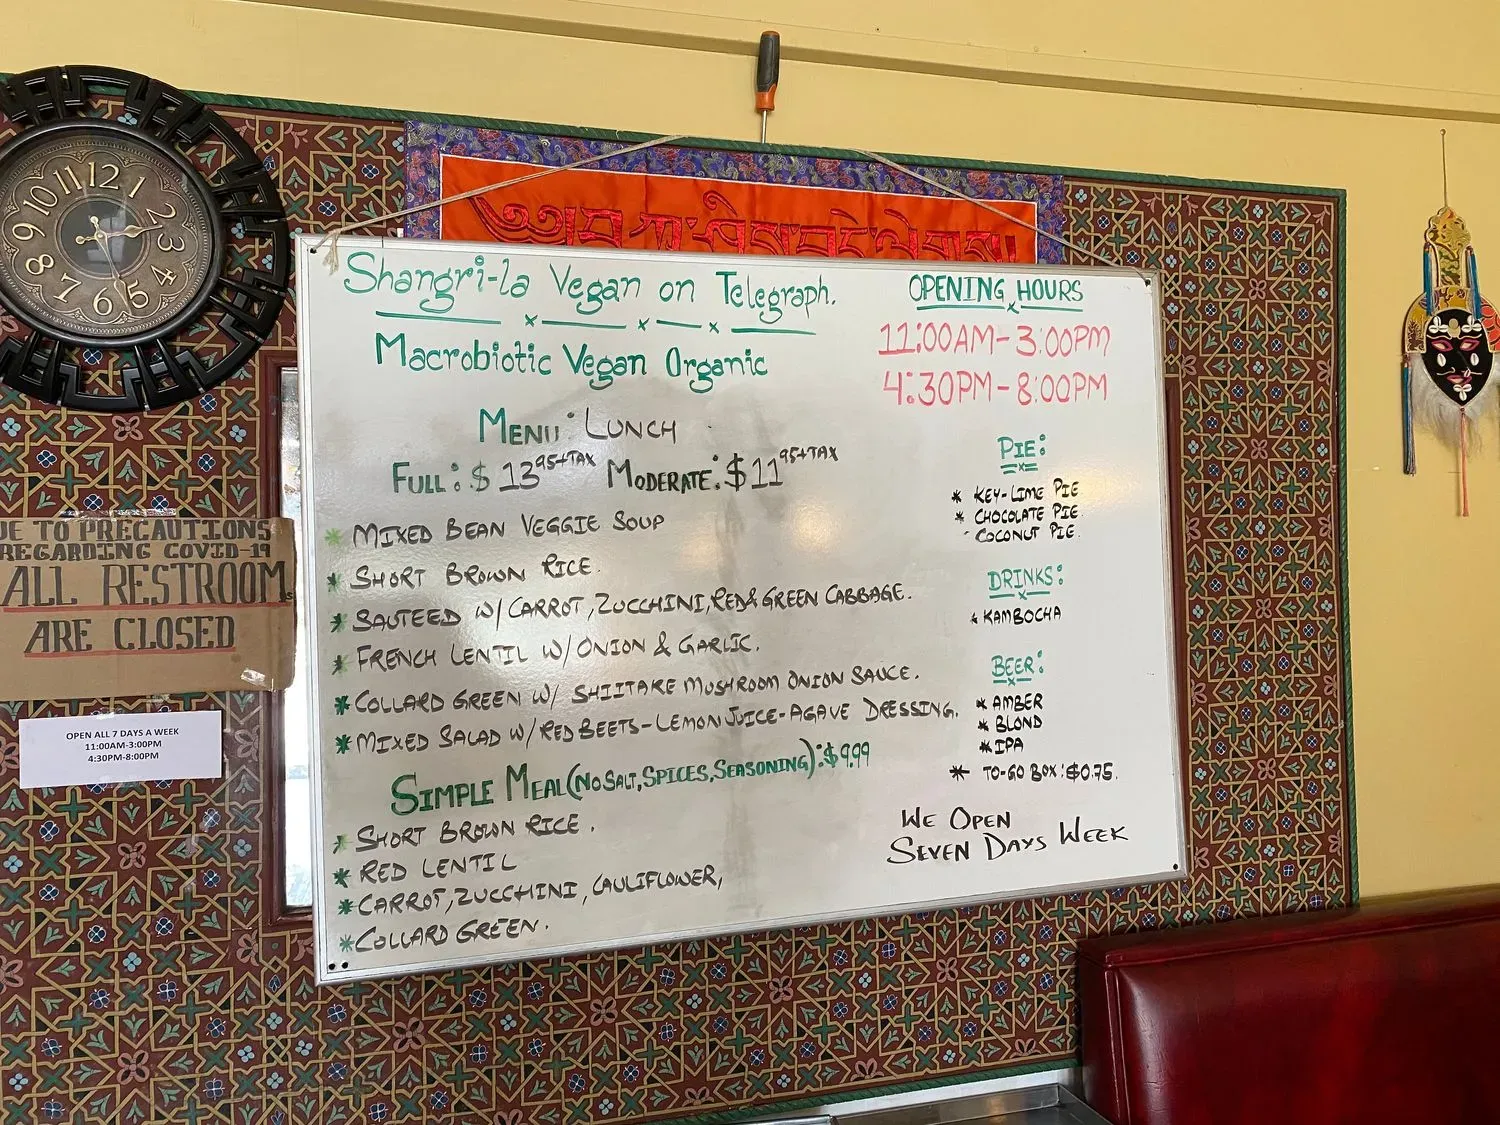 12
1
2
3
5
6
7
8
9
10
11
Shangri-la Vegan on Telegraph.
Macrobiotic Vegan Organic
Menu: Lunch
Full: $ 13 95+TAX Moderate: $ 11 95+TAX
* Mixed Bean Veggie Soup
* Short Brown Rice.
* Sauteed w/ Carrot, Zucchini, Red & Green Cabbage.
* French Lentil w/ Onion & Garlic.
* Collard Green w/ Shiitake Mushroom Onion Sauce.
* Mixed Salad w/ Red Beets-Lemon Juice-Agave Dressing.
Simple Meal (No Salt, Spices, Seasoning): $9.99
* Short Brown Rice.
* Red Lentil
* Carrot, Zucchini, Cauliflower,
* Collard Green.
OPENING HOURS
11:00AM-3:00PM
4:30PM-8:00PM
PIE:
* KEY-LIME PIE
* CHOCOLATE PIE.
- COCONUT PIE.
DRINKS:
* KAMBOCHA
BEER:
* AMBER
* BLOND
* IPA
* TO-GO BOX: $0.75.
We Open
Seven Days Week
UE TO PRECAUTIONS
REGARDING COVID-19
ALL RESTROOMs
ARE CLOSED
OPEN ALL 7 DAYS A WEEK
11:00AM-3:00PM
4:30PM-8:00PM